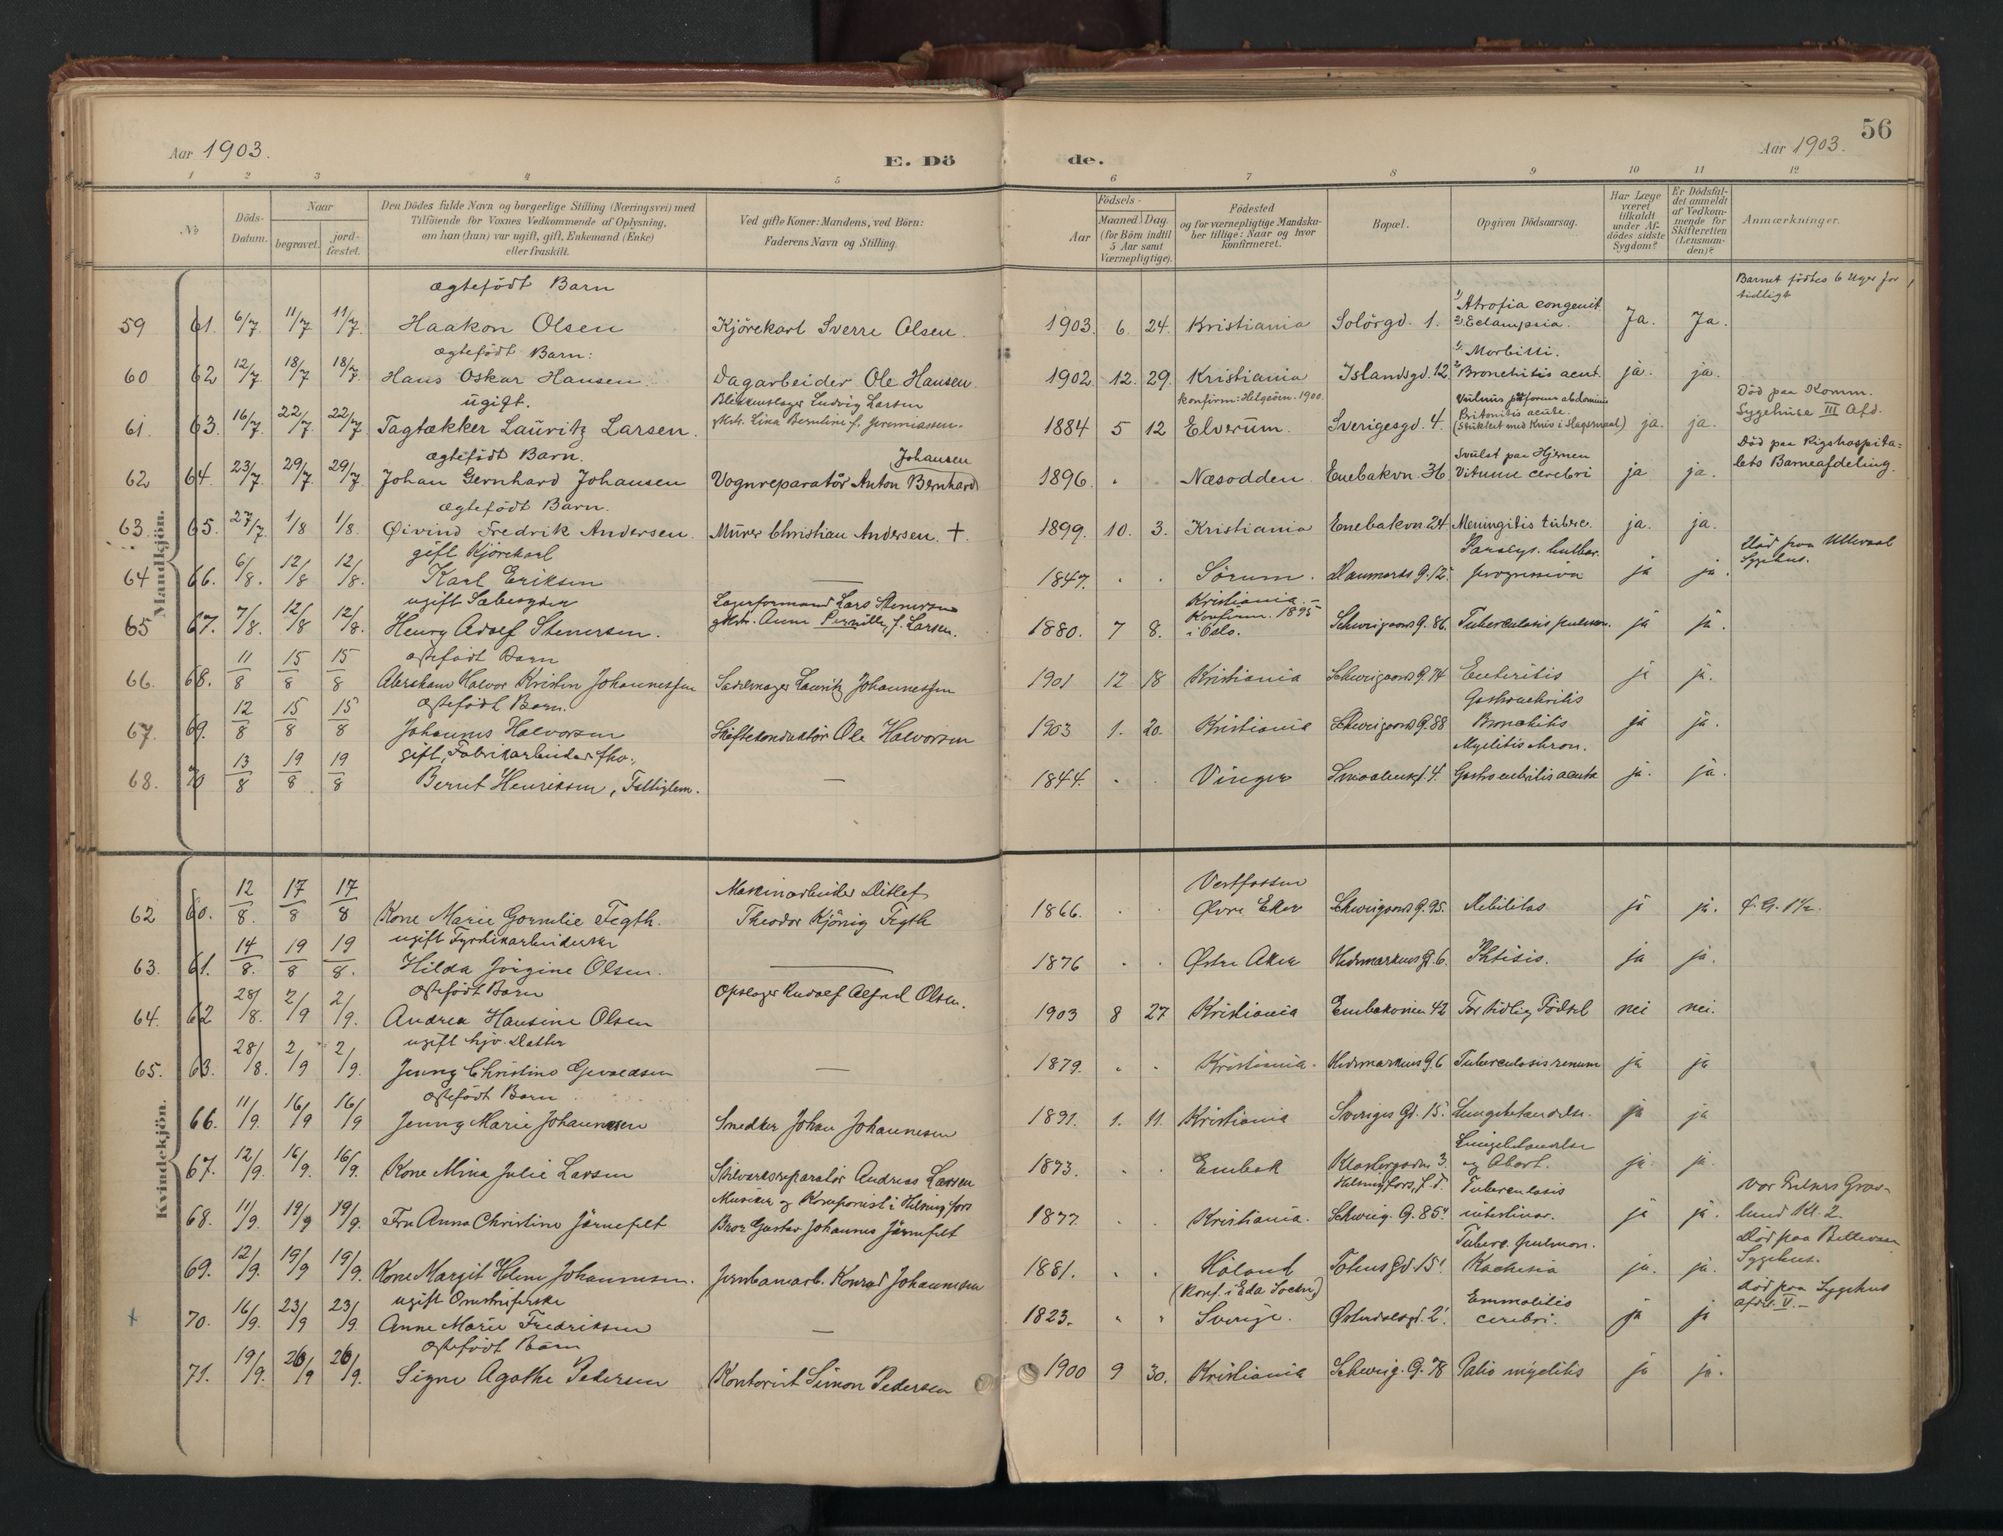 56
Aar 1903.
E. Dö
de.
Aar 1903.
1 2 3 4 5 6 7 8 9 10 11 12
№
Döds-
Datum.
Naar
begravet.
jord-
fæstet.
Den Dödes fulde Navn og borgerlige Stilling (Næringsvei) med
Tilföiende for Voxnes Vedkommende af Oplysning,
om han (hun) var ugift, gift, Enkemand (Enke)
eller fraskilt.
Ved gifte Koner: Mandens, ved Börn:
Faderens Navn og Stilling.
Födsels-
Aar
Maaned Dag
(for Börn indtil
5 Aar samt
Værnepligtige).
Födested
og for værnepligtige Mandska-
ber tillige: Naar og hvor
konfirmeret.
Bopæl.
Opgiven Dödsaarsag.
Har Læge
været
tilkaldt
under Af-
dödes sidste
Sygdom?
Er Dödsfal-
det anmeldt
af Vedkom-
mende for
Skifteretten
(Lensman-
den)?
Anmærkninger.
Mandkjön.
ægtefödt Barn
Barnet födtes 6 Uger for
tidligt
59 61. 6/7 11/7 11/7 Haakon Olsen Kjörekarl Sverre Olsen. 1903. 6. 24. Kristiania Solörgd. 1. 1) Atrofia congenit 2) Eclampsia. Ja. Ja.
ægtefödt Barn:
60 62 12/7 18/7 18/7 Hans Oskar Hansen Dagarbeider Ole Hansen 1902. 12. 29. Kristiania Islandsgd. 12 1. Morbilli. 2 Bronchitis acut. ja. ja.
ugift.
61. 63. 16/7 22/7 22/7 Tagtækker Lauritz Larsen. Ludvig Larsen 1884 5 12 Elverum. konfirm: Helgøen. 1900. Sverigesgd. 4. ja. ja. Död paa Komm.
Sygehuse III Afd.
ægtefödt Barn.
62 64. 23/7 29/7 29/7 Johan Gernhard Johansen Vognreparatör Anton Bernhard Johansen 1896. Næsodden Enebakvn. 36 Svulst paa Hjernen Vitume cerebri ja ja. Död paa Rigshospita-
lets Barneafdeling.
ægtefödt Barn.
63. 65. 27/7 1/8 1/8 Øivind Fredrik Andersen. Murer Christian Andersen. + 1899. 10. 3. Kristiania Enebakvn 24 Meningitis tuberc. ja. ja.
gift Kjörekarl
64 66. 6/8. 12/8 12/8. Karl Eriksen — 1847. Sörum. Danmarks G. 12. Paralys. bulbar. progressiva ja ja. Död paa Ullevaal
Sygehus.
ugift
65 67. 7/8. 12/8 12/8. Henry Adolf Stenersen. Lagerformand Lars Stenersen
Anne Pernille f. Larsen. 1880. 7 8. Kristiania. Konfirm. 1895 i Oslo. Schweigaards G. 86. Tuberculosis pulmon. ja ja.
ægtefödt Barn
66. 68. 11/8 15/8 15/8 Abraham Halvor Kristin Johannessen Sadelmager Lauritz Johannessen 1901 12 18 Kristiania Schweigaards G. 74 Enteritis ja ja.
ægtefödt Barn.
67. 69. 12/8 15/8 15/8 Johannes Halvorsen Skiftekonduktör Ole Halvorsen 1903 1. 20. Kristiania Schweigaards G. 88 Bronchitis ja ja.
gift, Fabrikarbeider
68. 70 13/8 19/8 19/8 Bernt Henriksen, Fattiglem. — 1844. Vinger Smaalensgd. 4. Myelitis chron. ja. ja.
Kvindekjön.
62 60. 12/8. 17/8 17/8 Kone Marie Gormelie Tegth. Maskinarbeider Ditlef
Theodor Kjönig Tegth 1866. Vestfossen
Øvre Eker Schweigaards G. 95. Debilitas ja ja. Ö. G. 1½.
ugift Fyrstikarbeiderske
63. 61. 14/8. 19/8 19/8. Hilda Jörgine Olsen. — 1876 Østre Aker Hedemarkens G. 6. Phtisis. ja ja.
ægtefödt Barn
64. 62 28/8. 2/9 2/9. Andrea Hansine Olsen Opslager Rudolf Alfred Olsen. 1903 8 27 Kristiania Enebakveien 42 For tidlig Födsel nei nei.
ugift hjv. Datter
65. 63. 28/8. 2/9 2/9. Jenny Christine Gevaldsen — 1879. Kristiania. Hedemarkens G. 6 Tuberculosis renum ja ja
ægtefödt Barn
66. 11/9. 16/9 16/9 Jenny Marie Johannesen Smedker Johan Johannesen 1891. 1. 11. Kristiania Sveriges Gd. 15. Lungebetændelse. ja ja
67. 12/9. 16/9. 16/9. Kone Mina Julie Larsen Andreas Larsen 1873. Enebak Klostergaden 3. Lungebetændelse
og Abort. ja. ja.
68. 11/9. 19/9 19/9. Fru Anna Christine Järnefelt Musiker og Komponist i Helsingfors
Bror Gustav Johannes Järnefelt 1877. Kristiania. Helsingfors, f.t.
Schweig. G. 85. Tuberculosis
intestinar. ja ja. Vor Frelsers Grav-
lund Kl. 2.
69. 12/9. 19/9 19/9. Kone Margit Helene Johannesen. Jernbanearb. Konrad Johannesen 1881. Höland Totens Gd. 15. Tuberc. pulmon.
Kachexia ja. ja. Död paa
Sygehus.
ugift
+ 70. 16/9. 23/9 23/9. Anne Marie Fredriksen — 1823. (Konf. i Eda Socken)
Sverige. Østerdalsgd. 2. cerebri. ja ja Död paa Sygehus
Afd. V.
ægtefödt Barn
71. 19/9. 26/9 26/9. Signe Agathe Pedersen Kontorist Simon Pedersen 1900 9 30. Kristiania Schweig. G. 78 Polio myelitis ja ja.